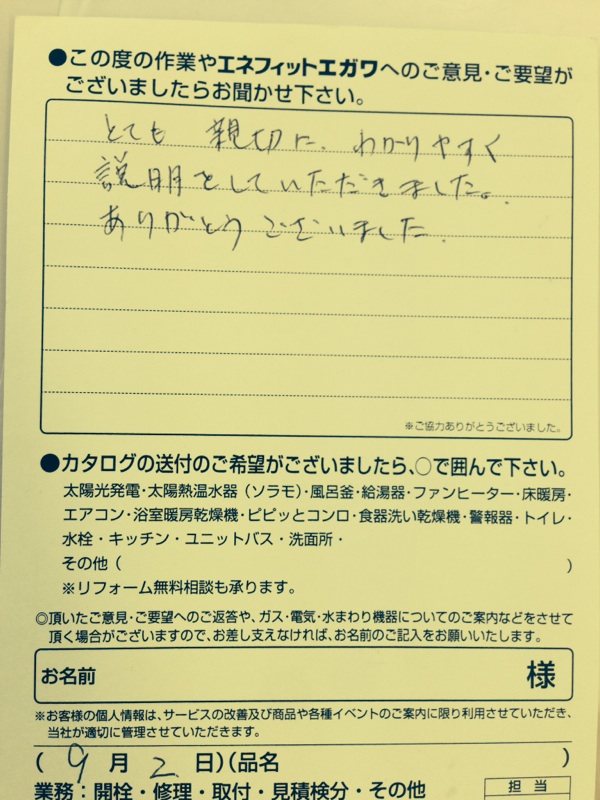 ●この度の作業やエネフィットエガワへのご意見・ご要望が
ございましたらお聞かせ下さい。
とても 親切に、わかりやすく
説明をしていただきました。
ありがとうございました.
※ご協力ありがとうございました。
●カタログの送付のご希望がございましたら、○で囲んで下さい。
太陽光発電・太陽熱温水器(ソラモ)・風呂釜・給湯器・ファンヒーター・床暖房・
エアコン・浴室暖房乾燥機・ピピッとコンロ・食器洗い乾燥機・警報器・トイレ・
水栓・キッチン・ユニットバス・洗面所・
その他( )
※リフォーム無料相談も承ります。
◎頂いたご意見・ご要望へのご返答や、ガス・電気・水まわり機器についてのご案内などをさせて
頂く場合がございますので、お差し支えなければ、お名前のご記入をお願いいたします。
お名前 様
※お客様の個人情報は、サービスの改善及び商品や各種イベントのご案内に限り利用させていただき、
当社が適切に管理させていただきます。
( 9 月 2 日)(品名 )
業務:開栓・修理・取付・見積検分・その他
担 当